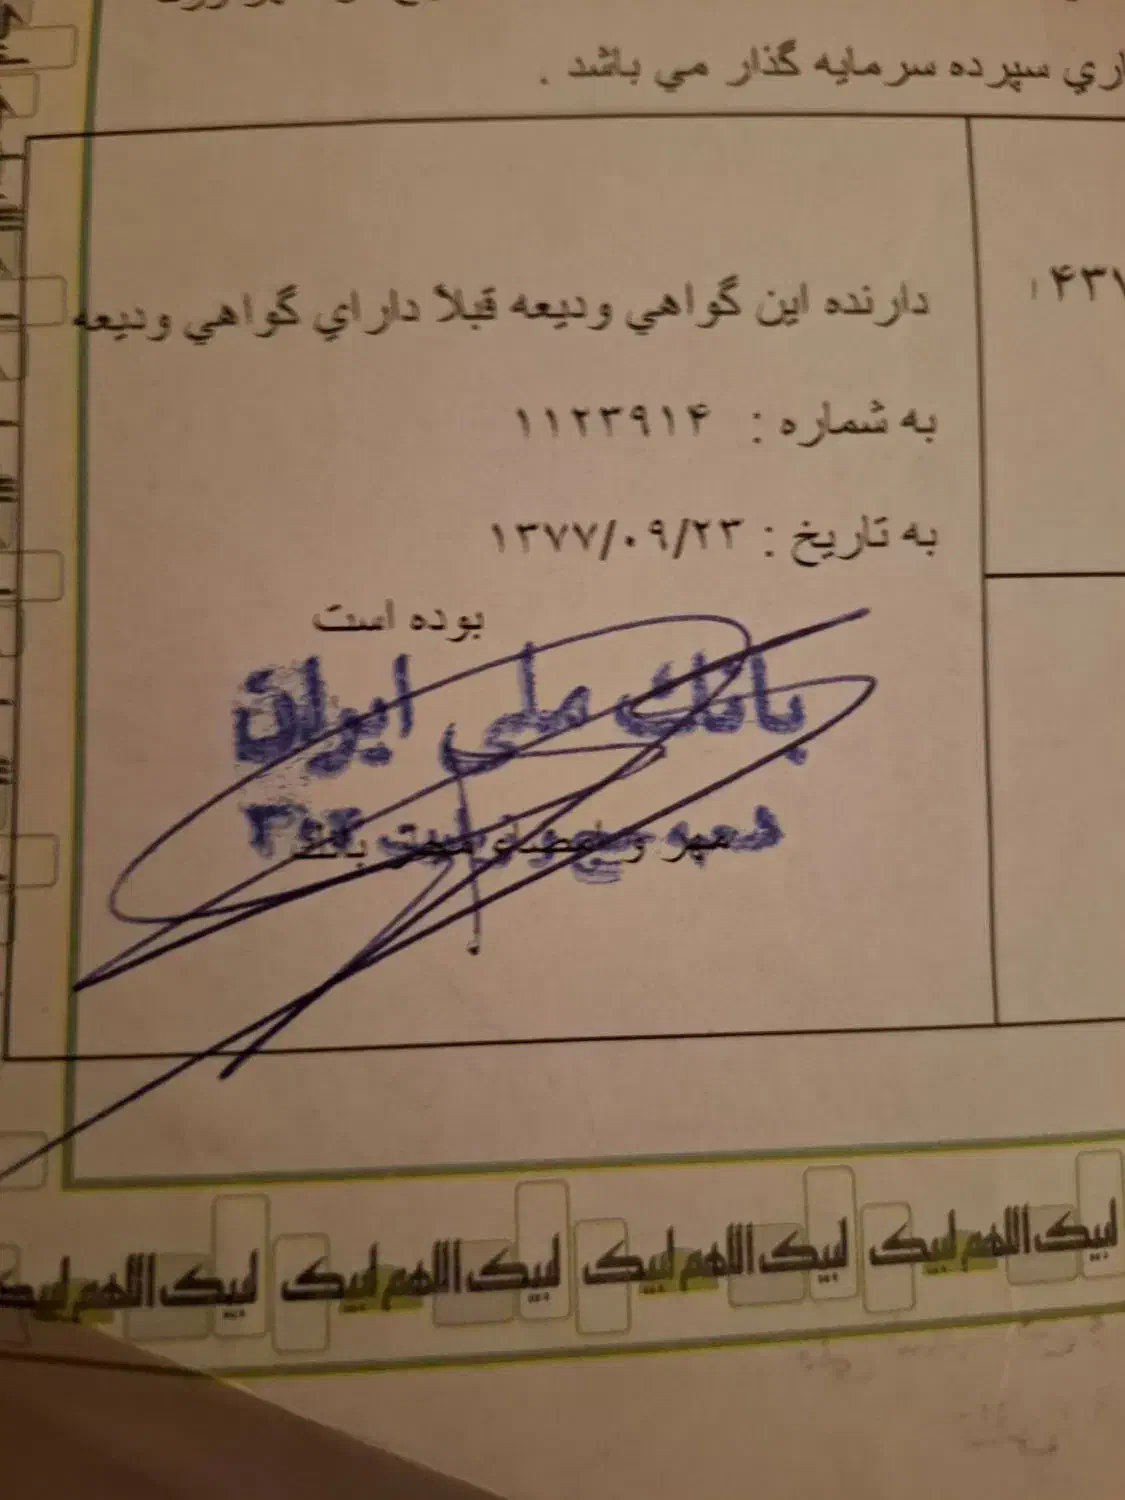 سپرده سرمايه گذار مي باشد .
۴۳۷
دارنده اين گواهي وديعه قبلاً داراي گواهي وديعه
به شماره : ۱۱۲۳۹۱۴
به تاريخ : ۱۳۷۷/۰۹/۲۳
بوده است
بانک ملی ایران
مهر و امضاء بانک
لبیک اللهم لبیک لبیک اللهم لبیک لبیک اللهم لبیک لبیک اللهم لبیک